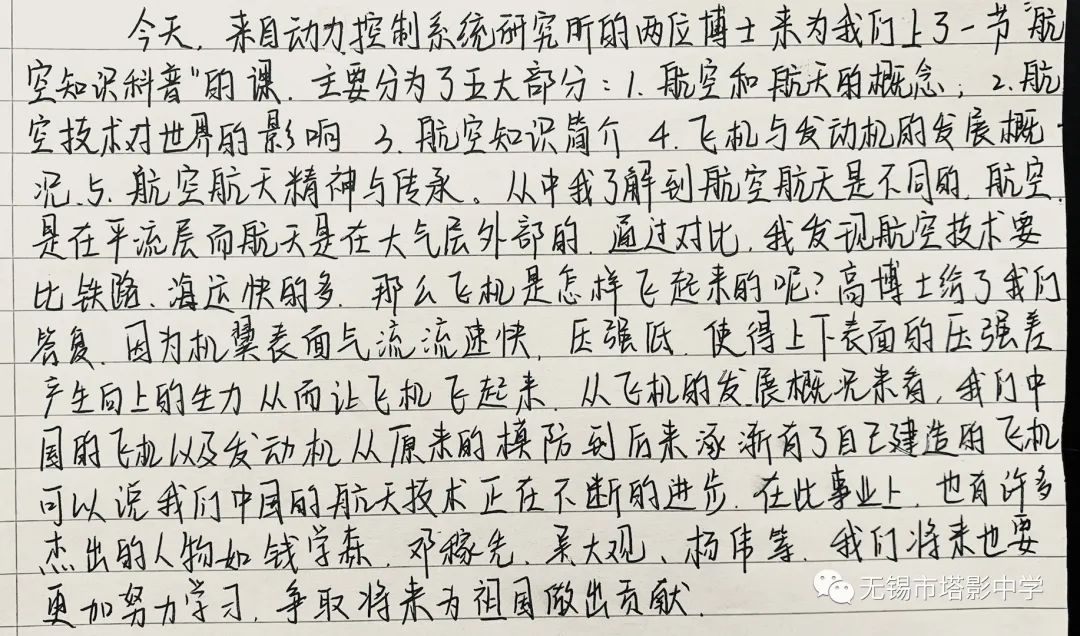 今天，来自动力控制系统研究所的两位博士来为我们上了一节“航
空知识科普”的课．主要分为了五大部分：1．航空和航天的概念；2．航
空技术对世界的影响 3．航空知识简介 4．飞机与发动机的发展概
况．5．航空航天精神与传承。从中我了解到航空航天是不同的，航空
是在平流层而航天是在大气层外部的．通过对比，我发现航空技术要
比铁路、海运快的多．那么飞机是怎样飞起来的呢？高博士给了我们
答复．因为机翼表面气流流速快，压强低．使得上下表面的压强差
产生向上的生力从而让飞机飞起来．从飞机的发展概况来看，我们中
国的飞机以及发动机从原来的模防到后来逐渐有了自己建造的飞机
可以说我们中国的航天技术正在不断的进步．在此事业上，也有许多
杰出的人物如钱学森、邓稼先、吴大观、杨伟等．我们将来也要
更加努力学习，争取将来为祖国做出贡献．
无锡市塔影中学